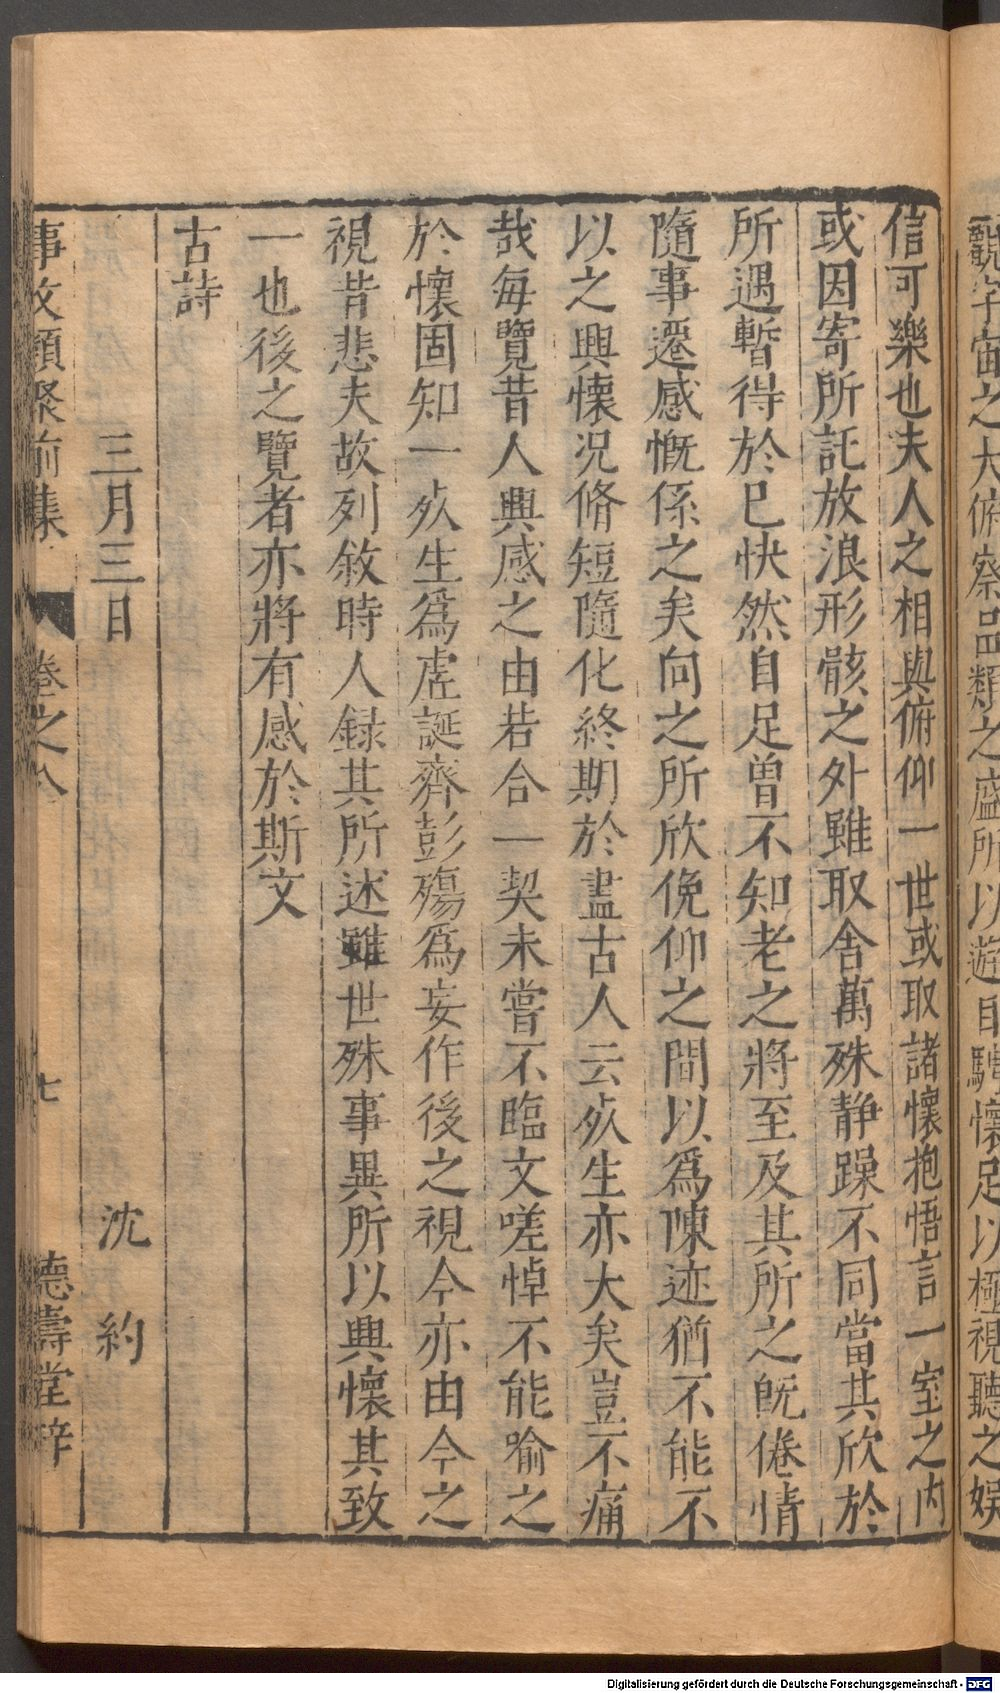 觀宇宙之大俯察品類之盛所以遊目騁懷足以極視聽之娛
信可樂也夫人之相與俯仰一世或取諸懷抱悟言一室之內
或因寄所託放浪形骸之外雖取舍萬殊静躁不同當其欣於
所遇暫得於已快然自足曽不知老之將至及其所之旣倦情
隨事遷感慨係之矣向之所欣俛仰之間以爲陳迹猶不能不
以之興懐況脩短隨化終期於盡古人云死生亦大矣豈不痛
哉每覽昔人興感之由若合一契未嘗不臨文嗟悼不能喻之
於懷固知一死生爲虗誕齊彭殤爲妄作後之視今亦由今之
視昔悲夫故列敘時人録其所述雖世殊事異所以興懷其致
一也後之覽者亦將有感於斯文
古詩
三月三日 沈約
事文類聚前集 卷之八 七 德壽堂梓
Digitalisierung gefördert durch die Deutsche Forschungsgemeinschaft - DFG